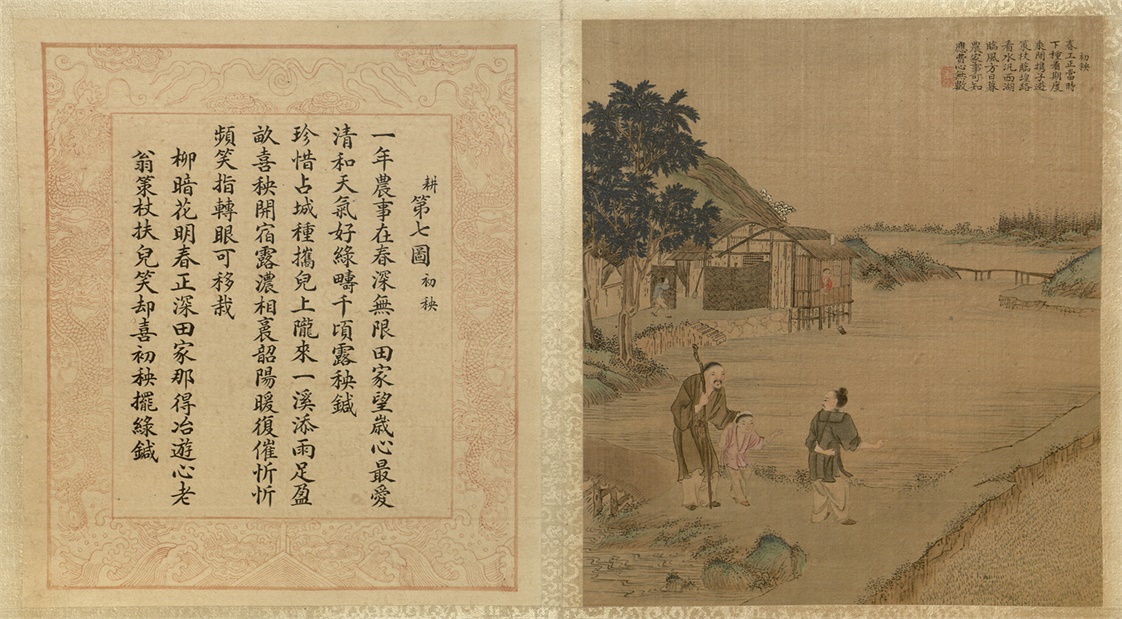 初秧
春工正當時
下種看期度
攜子遊
策杖臨路
看水汎西湖
臨風方日暮
農家事可知
應費心無數
耕第七圖初秧
一年農事在春深無限田家望歲心最愛
清和天氣好綠疇千頃露秧鍼
珍惜占城種攜兒上隴來一溪添雨足盈
畝喜秧開宿露濃相裛韶陽暖復催忻忻
頻笑指轉眼可移栽
柳暗花明春正深田家那得冶遊心老
翁策杖扶兒笑却喜初秧擺綠鍼